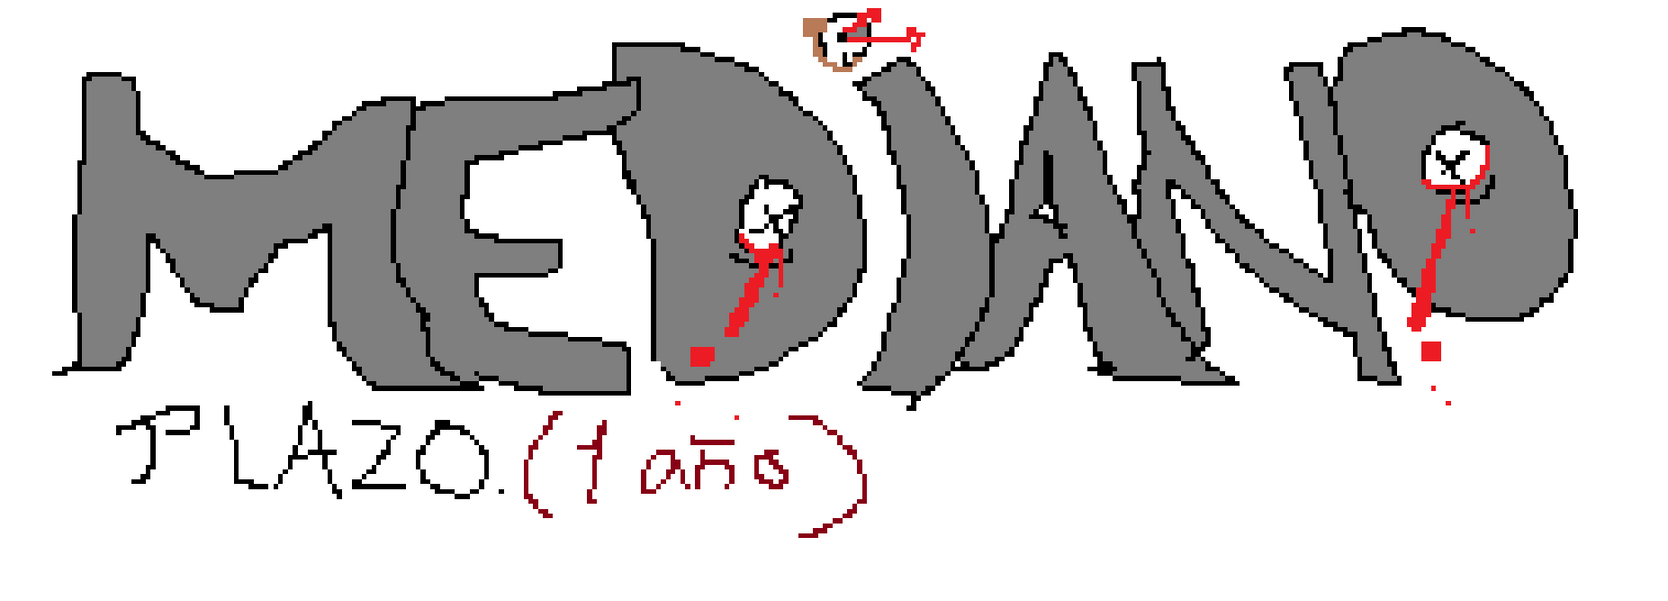 MEDIANO
PLAZO. (1 año)